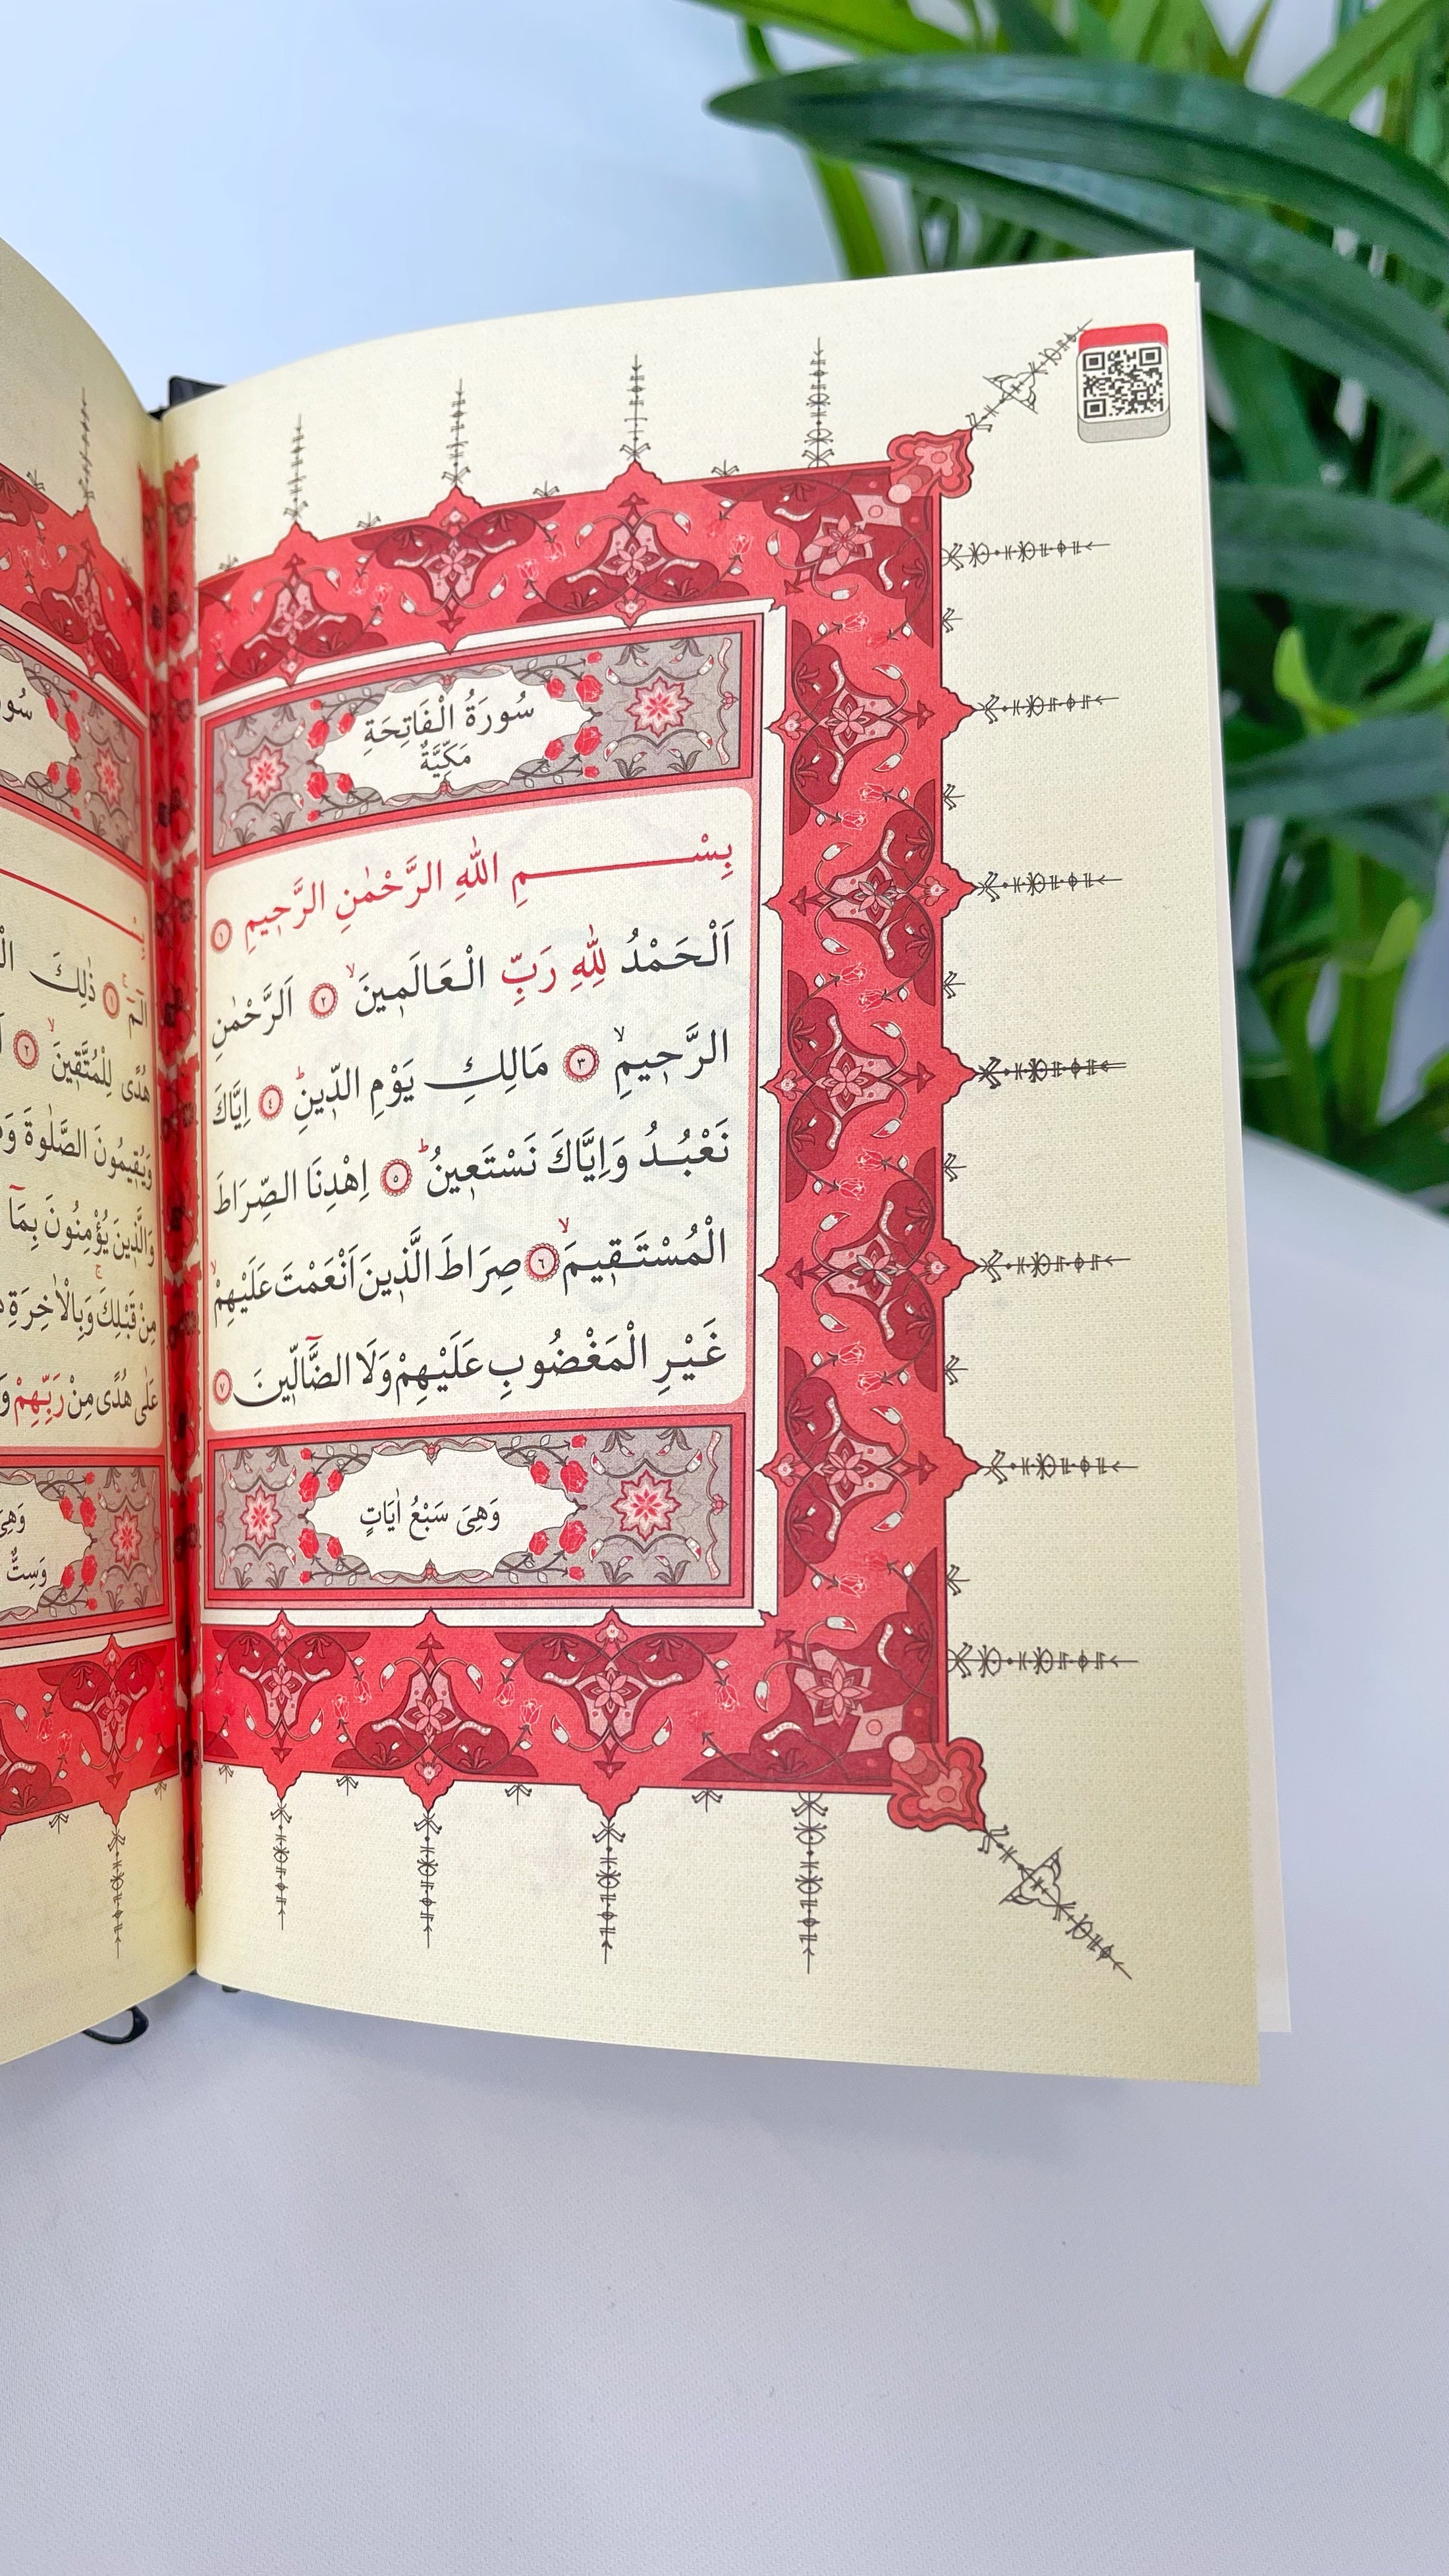 سُورَةُ الْفَاتِحَةِ
مَكِّيَّةٌ
بِسْمِ اللّٰهِ الرَّحْمٰنِ الرَّح۪يمِ ﴿١﴾
اَلْحَمْدُ لِلّٰهِ رَبِّ الْعَالَم۪ينَۙ ﴿٢﴾ اَلرَّحْمٰنِ
الرَّح۪يمِۙ ﴿٣﴾ مَالِكِ يَوْمِ الدّ۪ينِۜ ﴿٤﴾ اِيَّاكَ
نَعْبُدُ وَاِيَّاكَ نَسْتَع۪ينُۜ ﴿٥﴾ اِهْدِنَا الصِّرَاطَ
الْمُسْتَق۪يمَۙ ﴿٦﴾ صِرَاطَ الَّذ۪ينَ اَنْعَمْتَ عَلَيْهِمْۙ
غَيْرِ الْمَغْضُوبِ عَلَيْهِمْ وَلَا الضَّٓالّ۪ينَ ﴿٧﴾
وَهِيَ سَبْعُ اٰيَاتٍ
الٓمٓۚ ﴿١﴾ ذٰلِكَ
هُدًى لِلْمُتَّق۪ينَۙ ﴿٢﴾
وَيُق۪يمُونَ الصَّلٰوةَ
وَالَّذ۪ينَ يُؤْمِنُونَ بِمَٓا
مِنْ قَبْلِكَۚ وَبِالْاٰخِرَةِ
عَلٰى هُدًى مِنْ رَبِّهِمْ
وَهِيَ
وَسِتٌّ